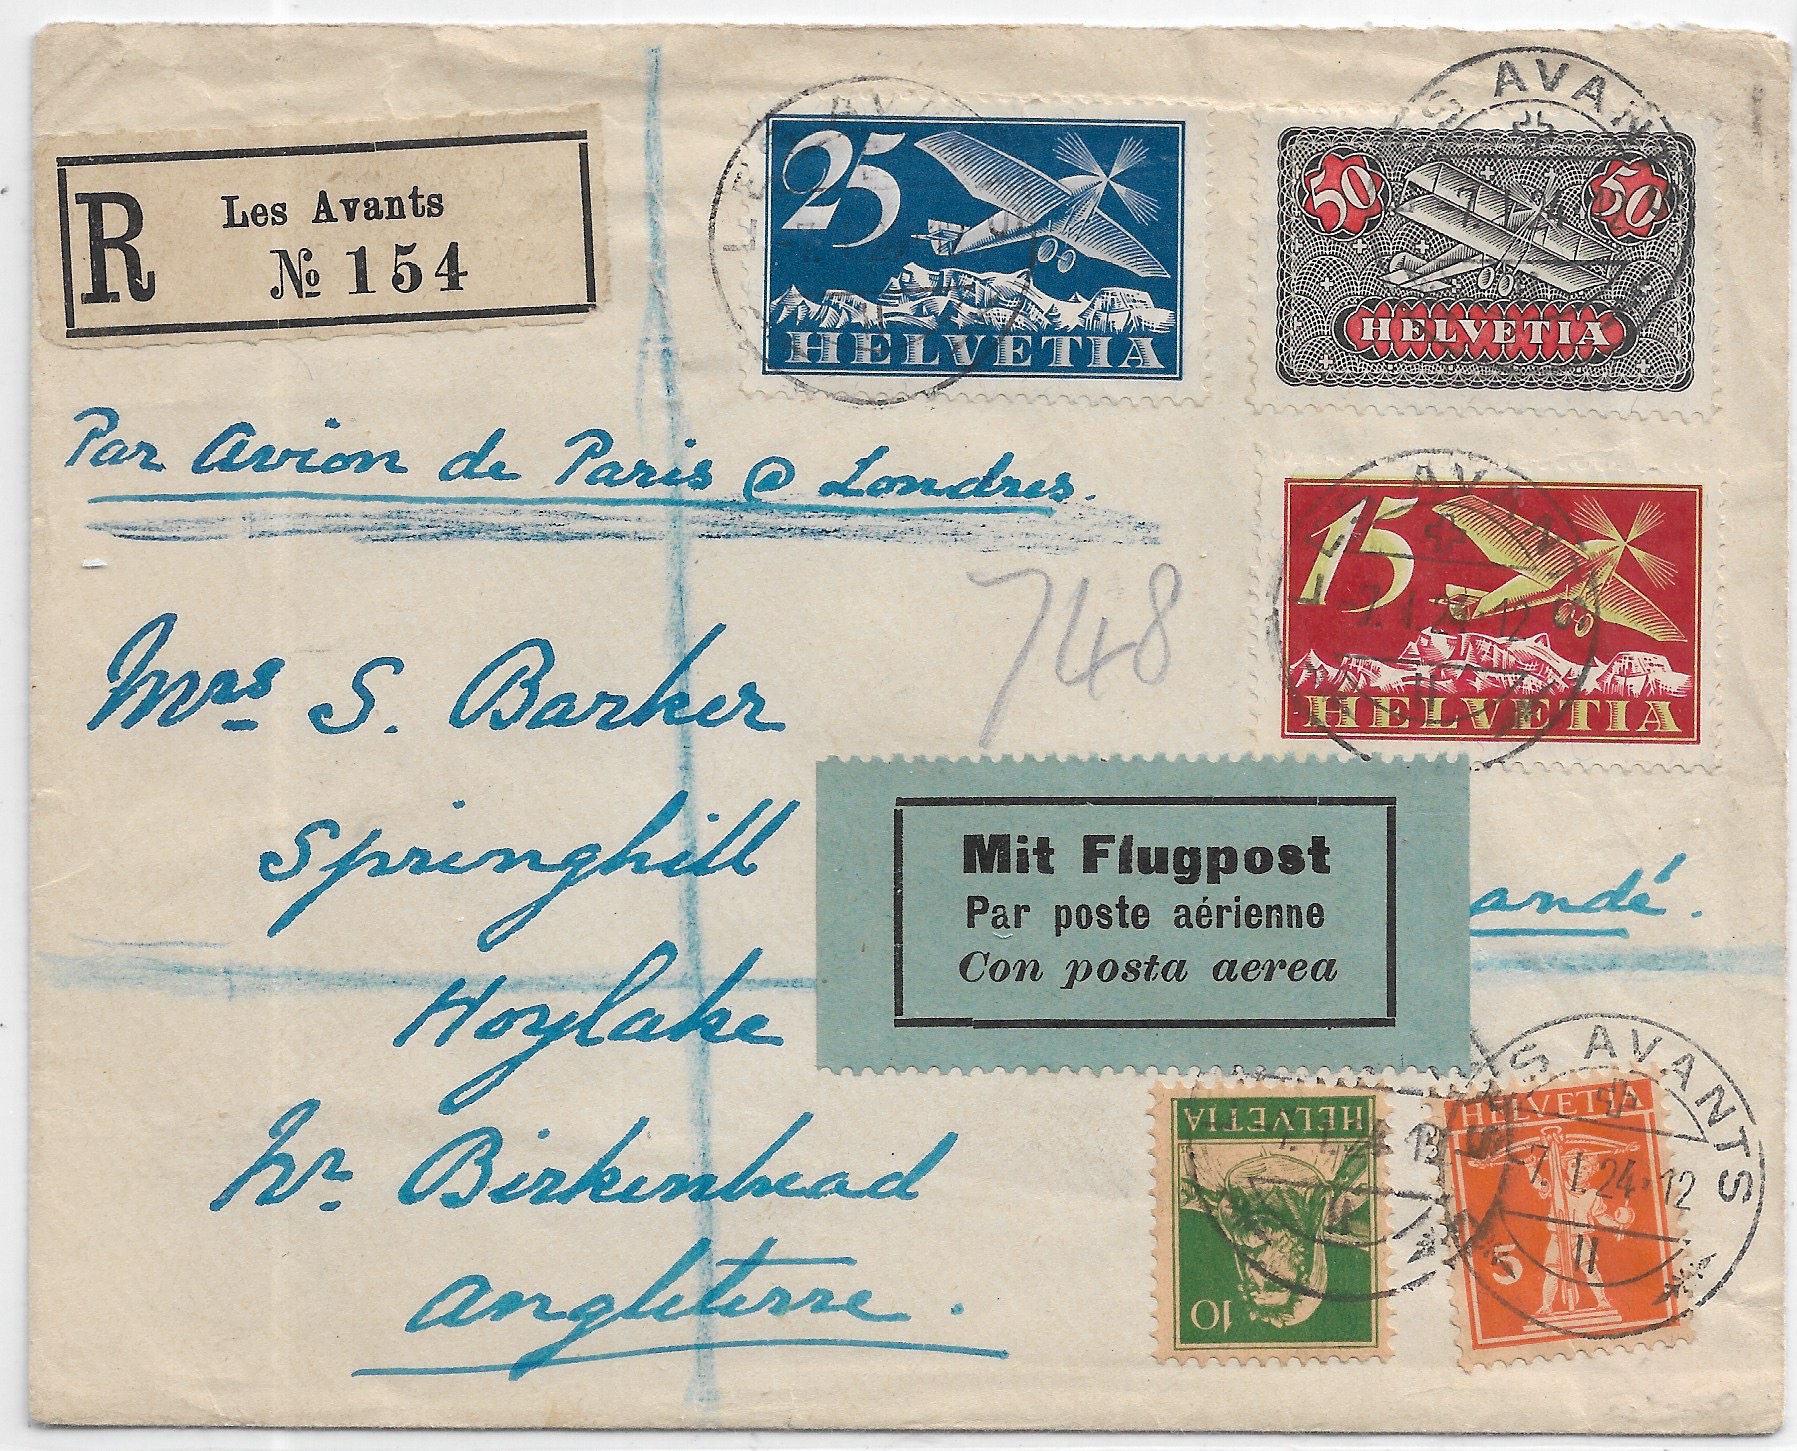 R
Les Avants
№ 154
25
HELVETIA
50 50
HELVETIA
LES AVANTS
Par Avion de Paris @ Londres.
15
HELVETIA
LES AVANTS
7.I.24.12
II
748
Mrs S. Barker
Springhill
Hoylake
Nr. Birkenhead
Angleterre.
Mit Flugpost
Par poste aérienne
Con posta aerea
andé.
HELVETIA
10
HELVETIA
5
LES AVANTS
7.I.24.12
II